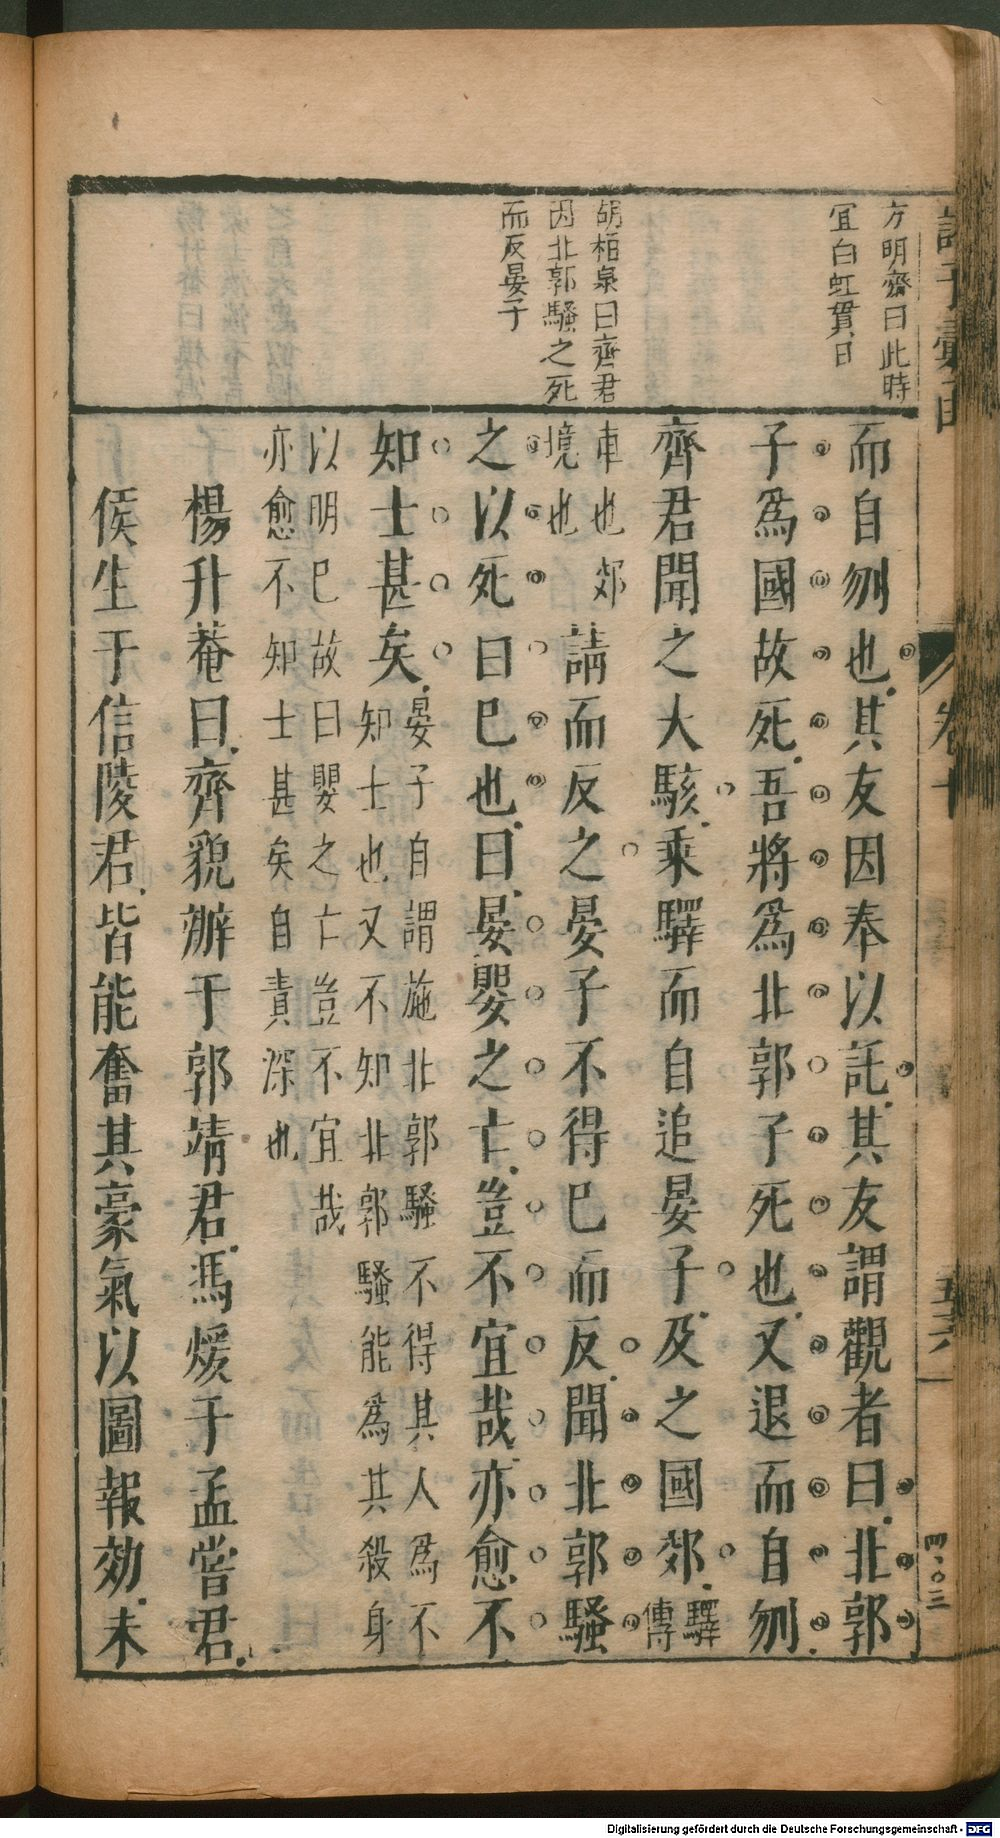 方明齋曰此時
宜白虹貫日
胡柏泉曰齊君
因北郭騷之死
而反晏子
而自刎也其友因奉以託其友謂觀者曰北郭
子爲國故死吾將爲北郭子死也又退而自刎
齊君聞之大駭乘驛而自追晏子及之國郊驛
傳
車也郊
境也
請而反之晏子不得已而反聞北郭騷
之以死曰已也曰晏嬰之亡豈不宜哉亦愈不
知士甚矣
晏子自謂施北郭騷不得其人爲不
知士也又不知北郭騷能爲其殺身
以明已故曰嬰之亡豈不宜哉
亦愈不知士甚矣自責深也
楊升菴曰齊貌辦于郭靖君馮煖于孟嘗君
侯生于信陵君皆能奮其豪氣以圖報効未
卷十
五六
四〇三
Digitalisierung gefördert durch die Deutsche Forschungsgemeinschaft - DFG